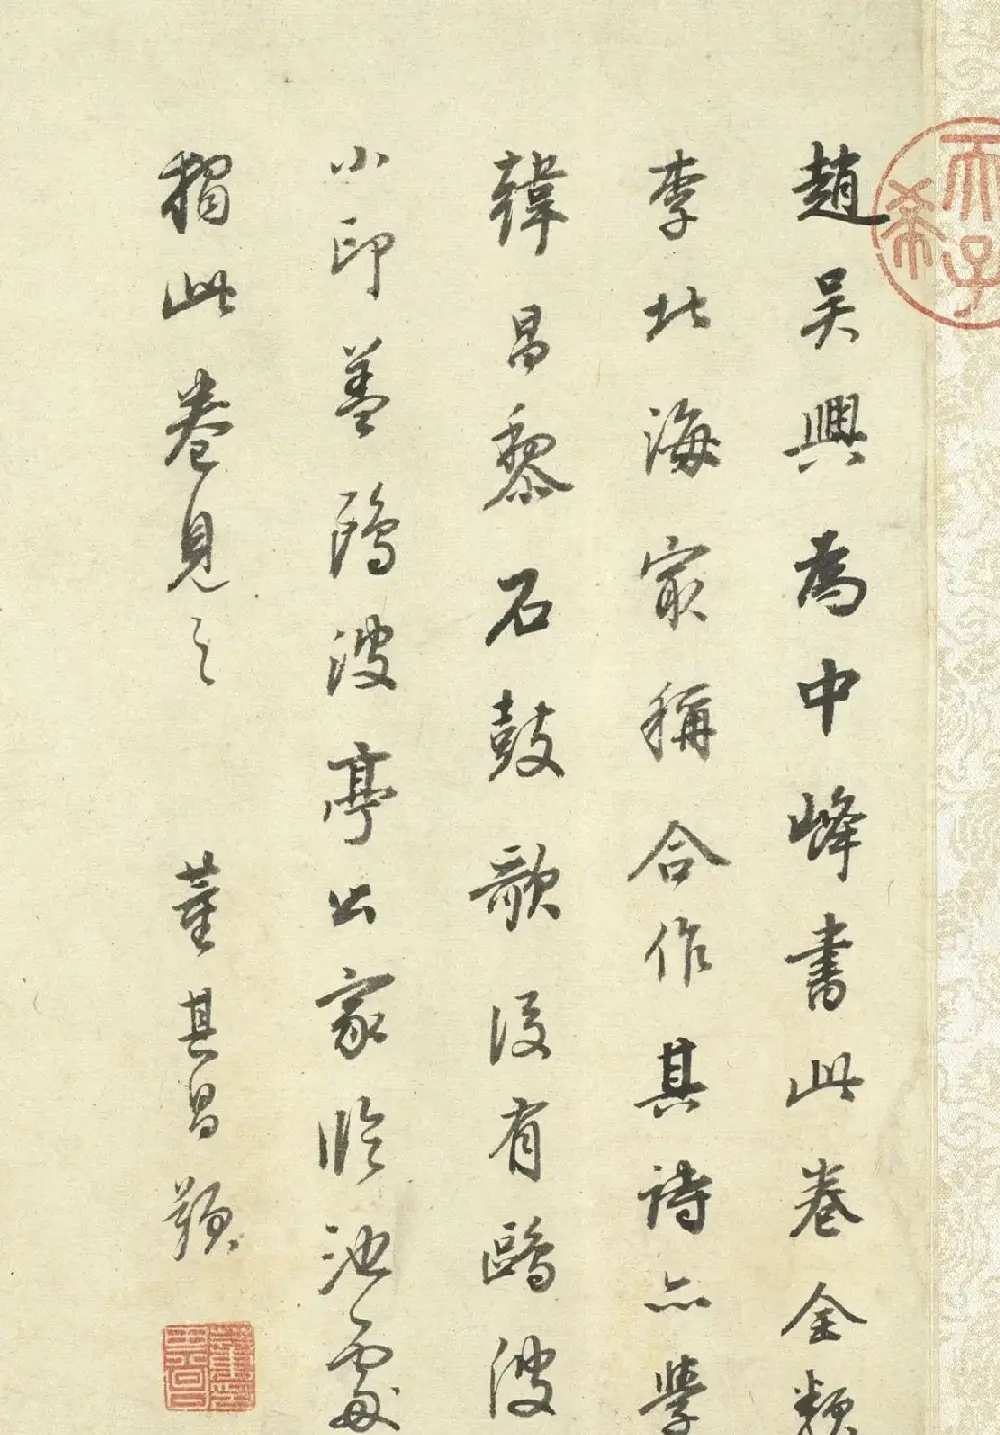 趙吳興為中峰書此卷全類
李北海家稱合作其詩亦學
韓昌黎石鼓歌後有鷗波
小印蓋鷗波亭公家臨池處
獨此卷見之
董其昌題
天子
希